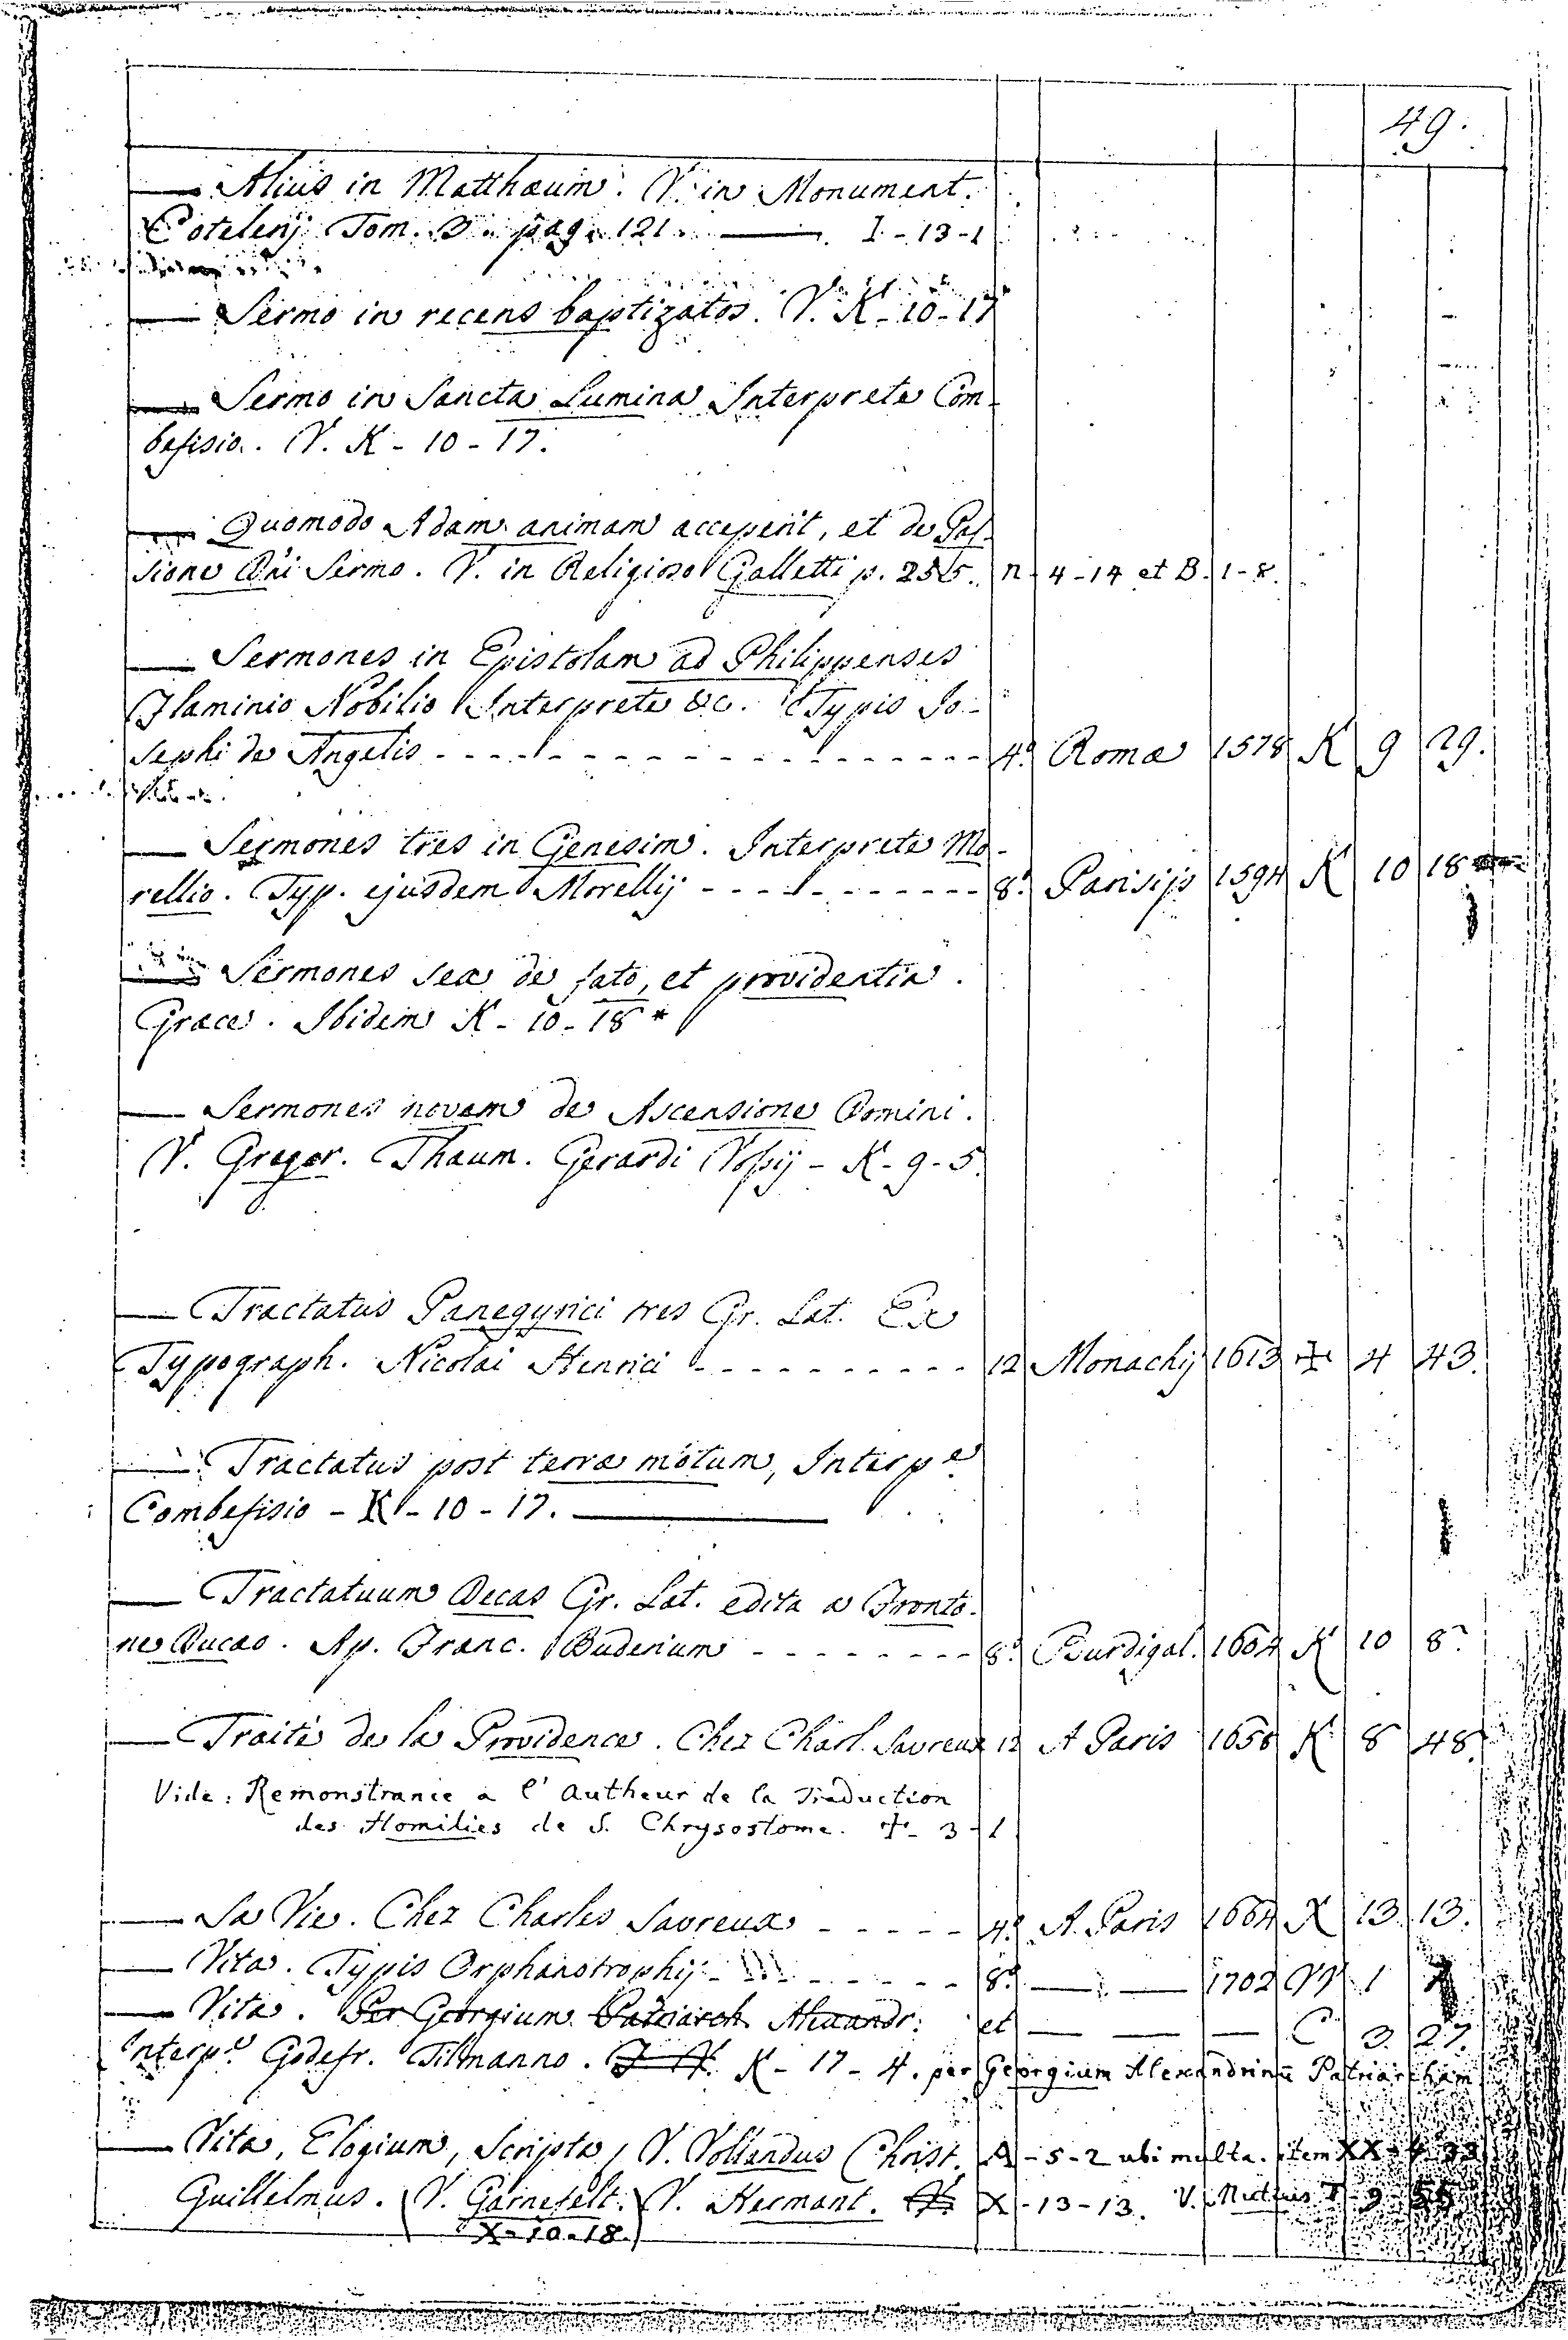 49.
— Alius in Matthæum. V. in Monument.
Cotelerij Tom. 3. pag. 121. — I - 13 - 1
— Sermo in recens baptizatos. V. K - 10 - 17
— Sermo in Sancta Lumina Interprete Com-
befisio. V. K - 10 - 17.
— Quomodo Adam animam acceperit, et de Pas-
sione Dñi Sermo. V. in Religioso Galletti p. 255. n - 4 - 14 et B. 1 - 8.
— Sermones in Epistolam ad Philippenses
Flaminio Nobilio Interprete &c. Typis Jo-
sephi de Angelis - - - - 4.º Romæ 1578 K 9 29.
— Sermones tres in Genesim. Interprete Mo-
rellio. Typ. ejusdem Morellij - - - - 8.º Parisijs 1594 K 10 18
— Sermones sex de fato, et providentia.
Græce. Ibidem K - 10 - 18 *
— Sermones novem de Ascensione Domini.
V. Gregor. Thaum. Gerardi Vossij - K - 9 - 5.
— Tractatus Panegyrici tres Gr. Lat. Ex
Typograph. Nicolai Henrici - - - - 12 Monachij 1613 ✠ 4 43.
— Tractatus post terræ motum, Interp.e
Combefisio - K - 10 - 17. —
— Tractatuum Decas Gr. Lat. edita a Fronto-
ne Ducæo. Ap. Franc. Buderium - - - - 8.º Burdigal. 1604 K 10 8.
— Traité de la Providence. Chez Charl. Savreux 12 A Paris 1658 K 8 48.
Vide: Remonstrance a l' Autheur de la Traduction
des Homilies de S. Chrysostome. ✠ - 3 - 1
— Sa Vie. Chez Charles Savreux - - - - 4.º A Paris 1664 X 13 13.
— Vita. Typis Orphanotrophij - - - - 8.º — — 1702 1
— Vita. Per Georgium Patriarch Alexandr. et — — — C 3. 27.
Interp.e Godefr. Tilmanno. K - 17 - 4. per Georgium Alexandrinũ Patriarcham
— Vita, Elogium, Scripta, V. Bollandus Christ. A - 5 - 2 ubi multa. item XX - 4 33
Guillelmus. (V. Garnefelt.) V. Hermant. X - 13 - 13. V. 9
X - 10 - 18.